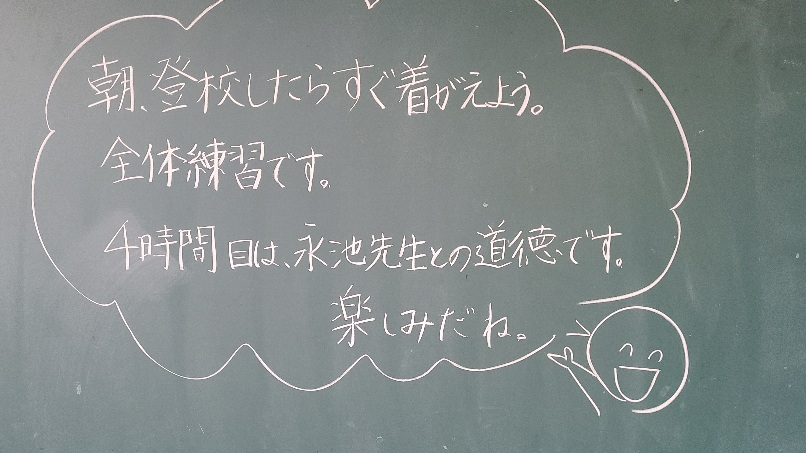 朝、登校したらすぐ着がえよう。
全体練習です。
4時間目は、永池先生との道徳です。
楽しみだね。